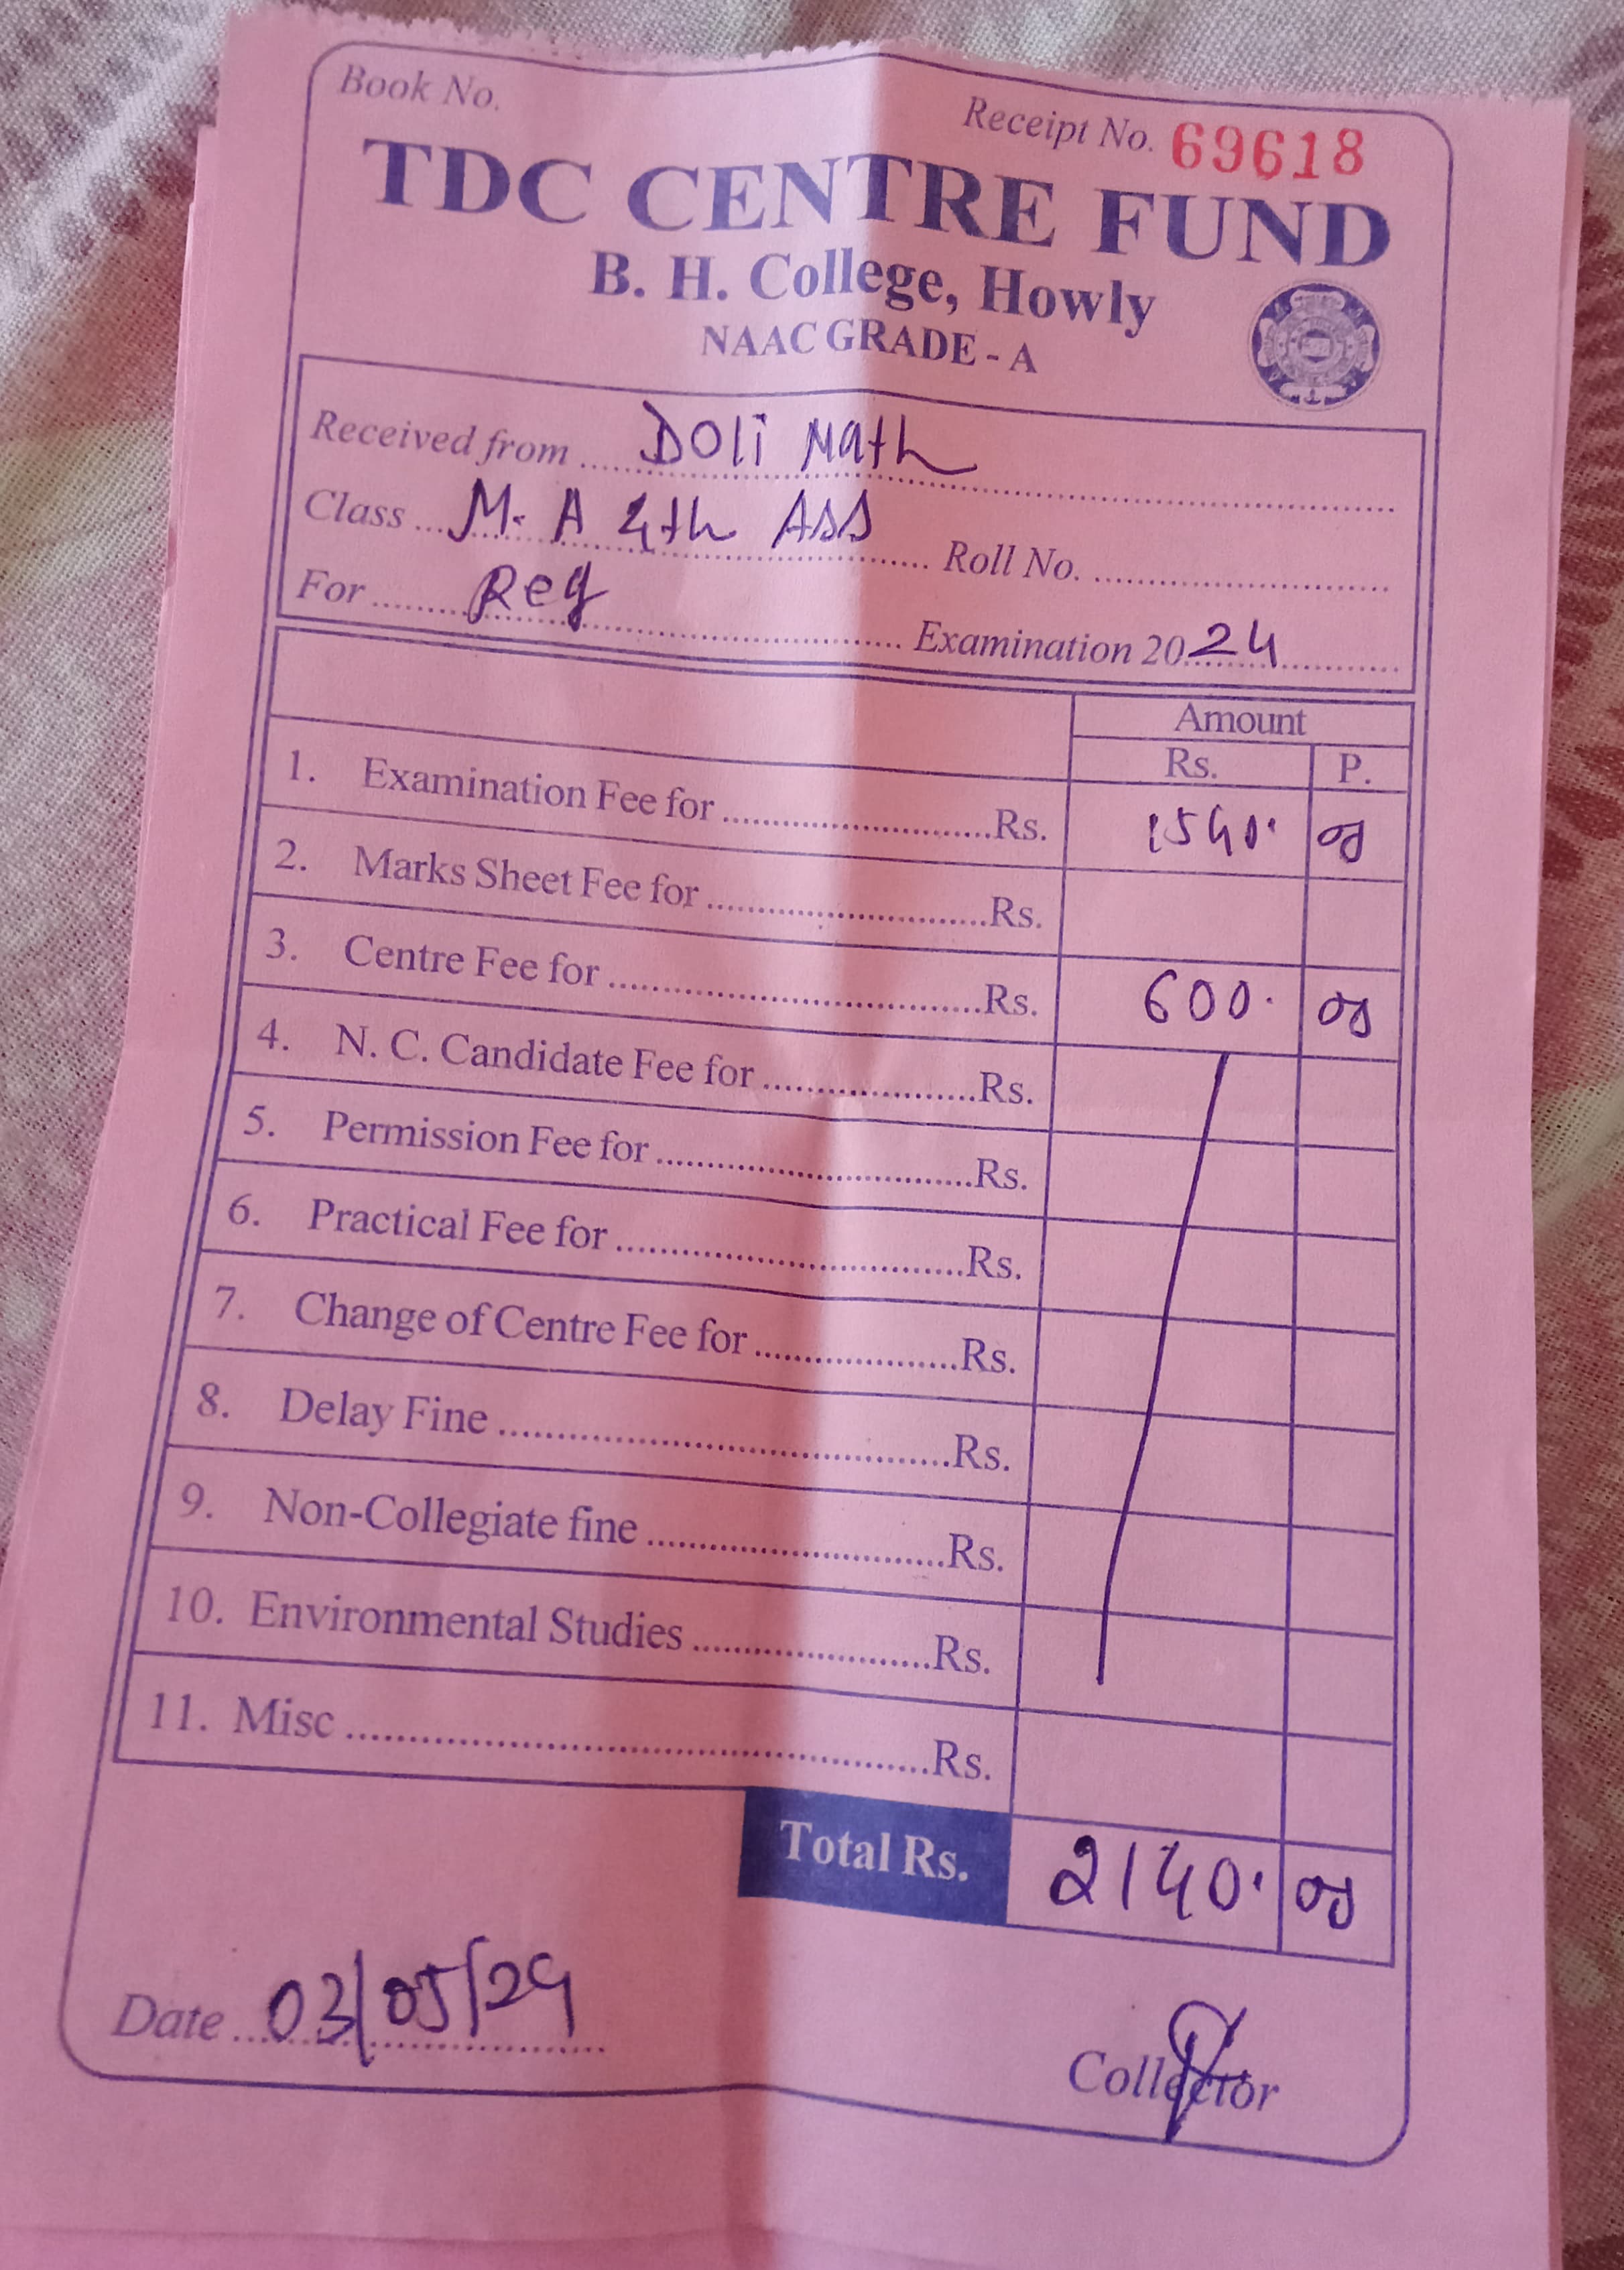 Book No.
Receipt No. 69618
TDC CENTRE FUND
B. H. College, Howly
NAAC GRADE - A
Received from Doli Math
Class M. A 4th Ass Roll No.
For Reg Examination 2024
Amount
Rs. P.
1. Examination Fee for Rs. 1540. 00
2. Marks Sheet Fee for Rs.
3. Centre Fee for Rs. 600. 00
4. N. C. Candidate Fee for Rs.
5. Permission Fee for Rs.
6. Practical Fee for Rs.
7. Change of Centre Fee for Rs.
8. Delay Fine Rs.
9. Non-Collegiate fine Rs.
10. Environmental Studies Rs.
11. Misc Rs.
Total Rs. 2140. 00
Date 03/05/24
Collector